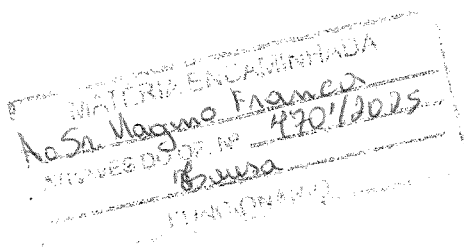 MATÉRIA ENCAMINHADA
Ao Sr. Magno Franca
ATRAVÉS DO OF. Nº 470/2025
FUNCIONÁRIO